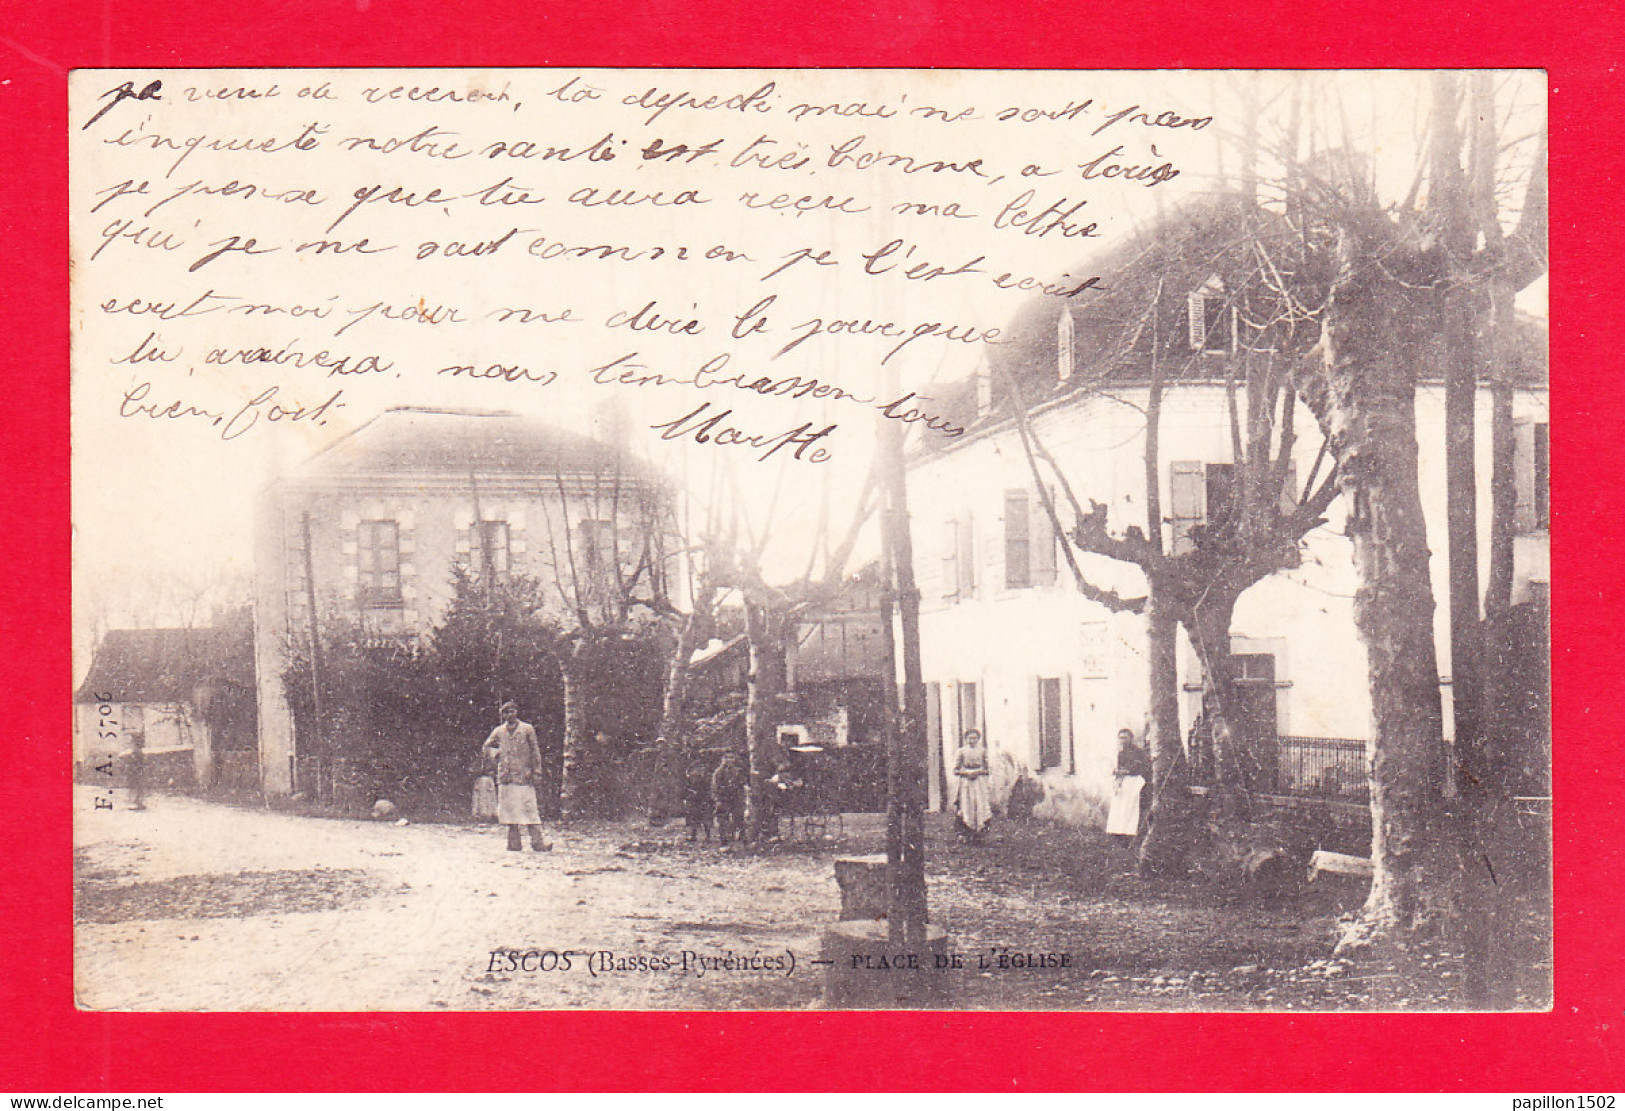 je vens de recevoir, ta depeche mai ne soit pas
inquieté notre santé est très bonne, a tous
je pense que tu aura reçu ma lettre
qui je ne sait comment je l'est ecrit
ecrit moi pour me dire le jour que
tu arrivera. nous t'embrassons tous
bien fort.
Marthe
F. A. 5706
ESCOS (Basses-Pyrénées) — PLACE DE L'ÉGLISE
delcampe.net
papillon1502